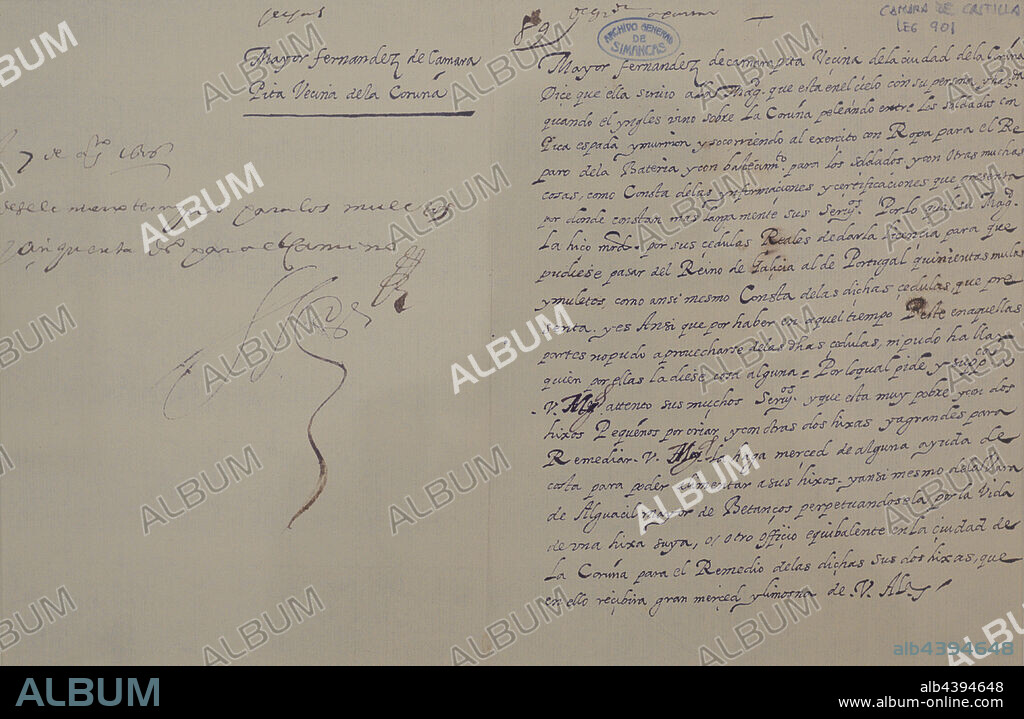 Mayor fernandez de Camara
Pita Vecina dela Coruña
7 de 1606
para los
cinquenta para el Camino
89
ARCHIVO GENERAL
DE
SIMANCAS
CAMARA DE CASTILLA
LEG 901
Mayor fernandez de camara pita Vecina dela ciudad dela Coruña
Dice que ella siruio a Su Magd. que esta en el cielo con su persona, y haz.da
quando el yngles vino sobre La Coruña peleando entre los soldados con
Pica espada y murrion y socorriendo al exercito con Ropa para el Re
paro dela Bateria y con bastecimto. para los soldados, y con otras muchas
cosas, como Consta delas ynformaciones y certificaciones que presenta
por donde constan mas largamente sus Seruos. Por lo qual su Magd.
La hiço mrd. por sus cedulas Reales de darla licencia para que
pudiese pasar del Reino de Galicia al de Portugal quinientas mulas
y muletos, como ansi mesmo Consta delas dichas cedulas, que pre
senta. y es Ansi que por haber en aquel tiempo Peste en aquellas
partes no pudo aprouecharse delas dhas cedulas, ni pudo hallar
quien por ellas la diese cosa alguna = Por loqual pide y supca. a
V. Mg. attento sus muchos Seruos. y que esta muy pobre y con dos
hixos Pequeños por criar, y con otras dos hixas ya grandes para
Remediar. V. Mg. la haga merced de alguna ayuda de
costa para poder alimentar a sus hixos. y ansi mesmo dela Vara
de Alguacil mayor de Betanços perpetuandosela por la Vida
de vna hixa suya, o, otro officio equibalente en la ciudad de
La Coruña para el Remedio delas dichas sus dos hixas, que
en ello recibira gran merced y limosna de V. Al.
ALBUM
alb4394648
ALBUM
alb4394648
www.album-online.com